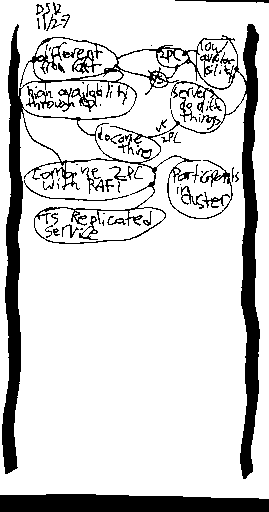 DSR
11/27
different
from RAFT
2PC
low
availa
bility
vs
high availability
through repl.
servers
do diff
things
do same
thing
vs
2PC
Combine 2PC
with RAFT
Participants
in
cluster
is Replicated
Service